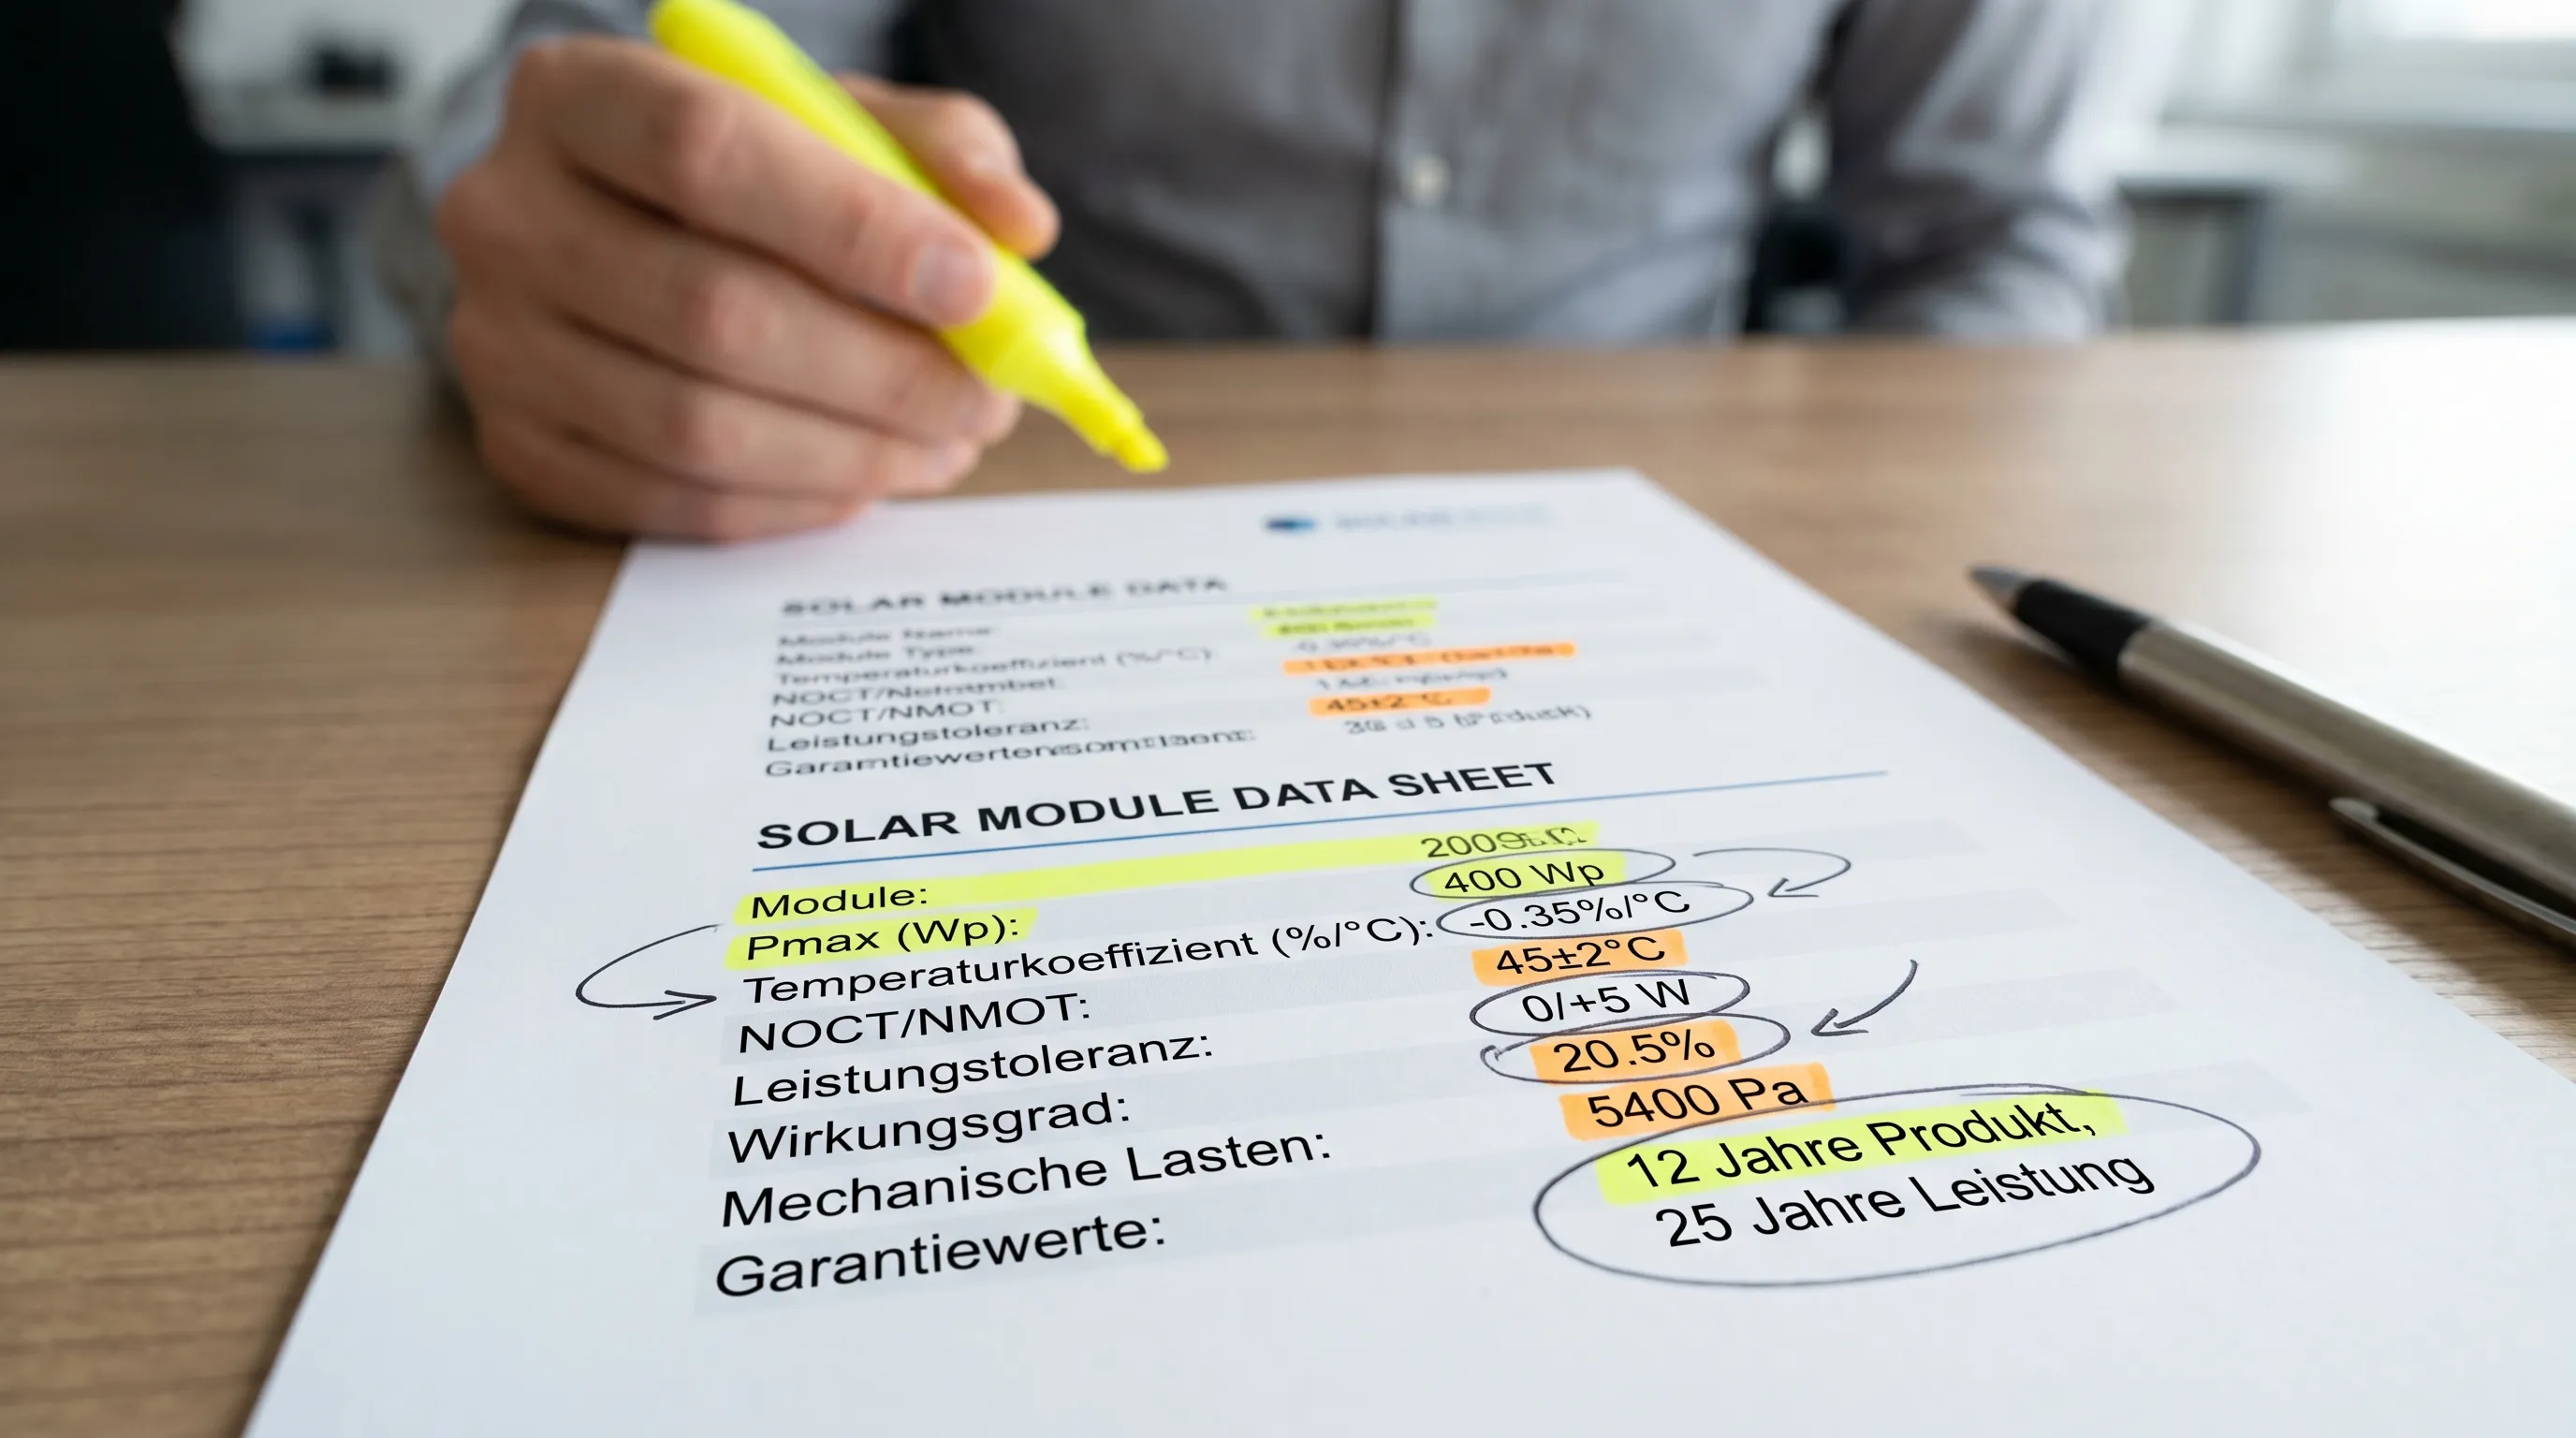 SOLAR MODULE DATA
Module Name:
Module Type:
Temperaturkoeffizient (%/°C):
NOCT/NMOT: 45±2°C
Leistungstoleranz:
SOLAR MODULE DATA SHEET
Module:
Pmax (Wp): 400 Wp
Temperaturkoeffizient (%/°C): -0.35%/°C
NOCT/NMOT: 45±2°C
Leistungstoleranz: 0/+5 W
Wirkungsgrad: 20.5%
Mechanische Lasten: 5400 Pa
Garantiewerte: 12 Jahre Produkt,
25 Jahre Leistung